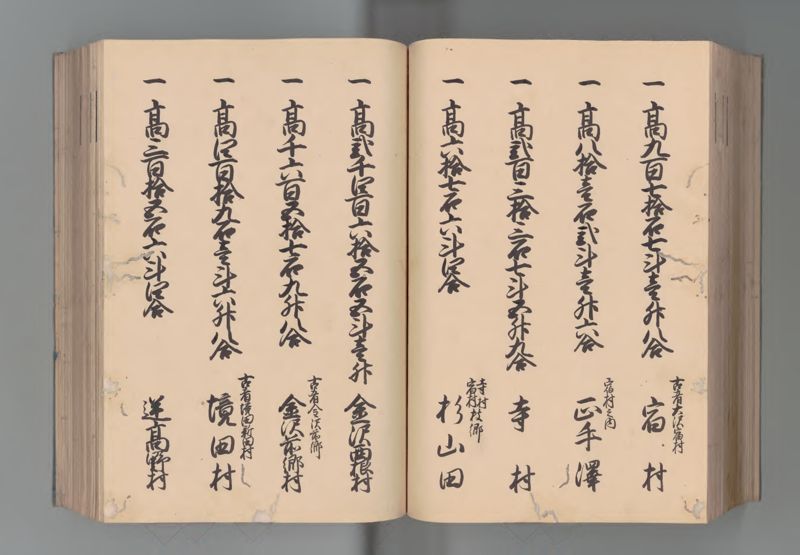 一 高九百七拾石七斗壱升八合
古者大沢宿村
宿村
一 高八拾壱石弐斗壱升六合
宿村之内
正手澤
一 高弐百三拾三石七斗五升九合
寺村
一 高六拾七石六斗四合
寺村
宿村枝郷
杉山田
一 高弐千四百六拾五石五斗壱升
金沢西根村
一 高千六百五拾七石九升八合
古者金沢前郷
金沢前郷村
一 高四百拾九石壱斗六升八合
古者境田新田村
境田村
一 高三百拾五石六斗四合
逆高野村